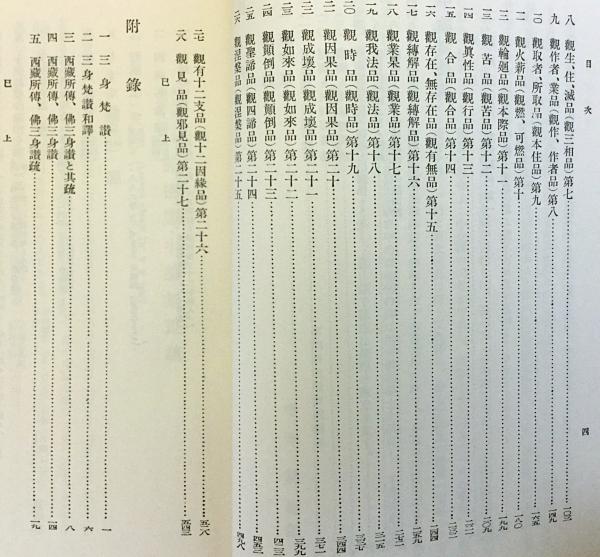 目次 四
八 觀生、住、滅品(觀三相品)第七……一〇三
九 觀作者、業品(觀作、作者品)第八……一四九
一〇 觀取者、所取品(觀本住品)第九……一六五
一一 觀火薪品(觀燃、可燃品)第十……一八〇
一二 觀輪廻品(觀本際品)第十一……一九九
一三 觀苦品(觀苦品)第十二……二〇九
一四 觀眞性品(觀行品)第十三……
一五 觀合品(觀合品)第十四……
一六 觀存在、無存在品(觀有無品)第十五……二四四
一七 觀縛解品(觀縛解品)第十六……
一八 觀業果品(觀業品)第十七……二七二
一九 觀我法品(觀法品)第十八……三一五
二〇 觀時品(觀時品)第十九……
二一 觀因果品(觀因果品)第二十……三四四
二二 觀成壞品(觀成壞品)第二十一……三七一
二三 觀如來品(觀如來品)第二十二……三九九
二四 觀顛倒品(觀顛倒品)第二十三……四二三
二五 觀聖諦品(觀四諦品)第二十四……四五三
二六 觀涅槃品(觀涅槃品)第二十五……四九八
二七 觀有十二支品(觀十二因緣品)第二十六……五二八
二八 觀見品(觀邪見品)第二十七……五四三
巳上
附錄
一 三身梵讚……一
二 三身梵讚和譯……六
三 西藏所傳、佛三身讚と其疏……八
四 西藏所傳、佛三身讚……一四
五 西藏所傳、佛三身讚疏……一九
巳上